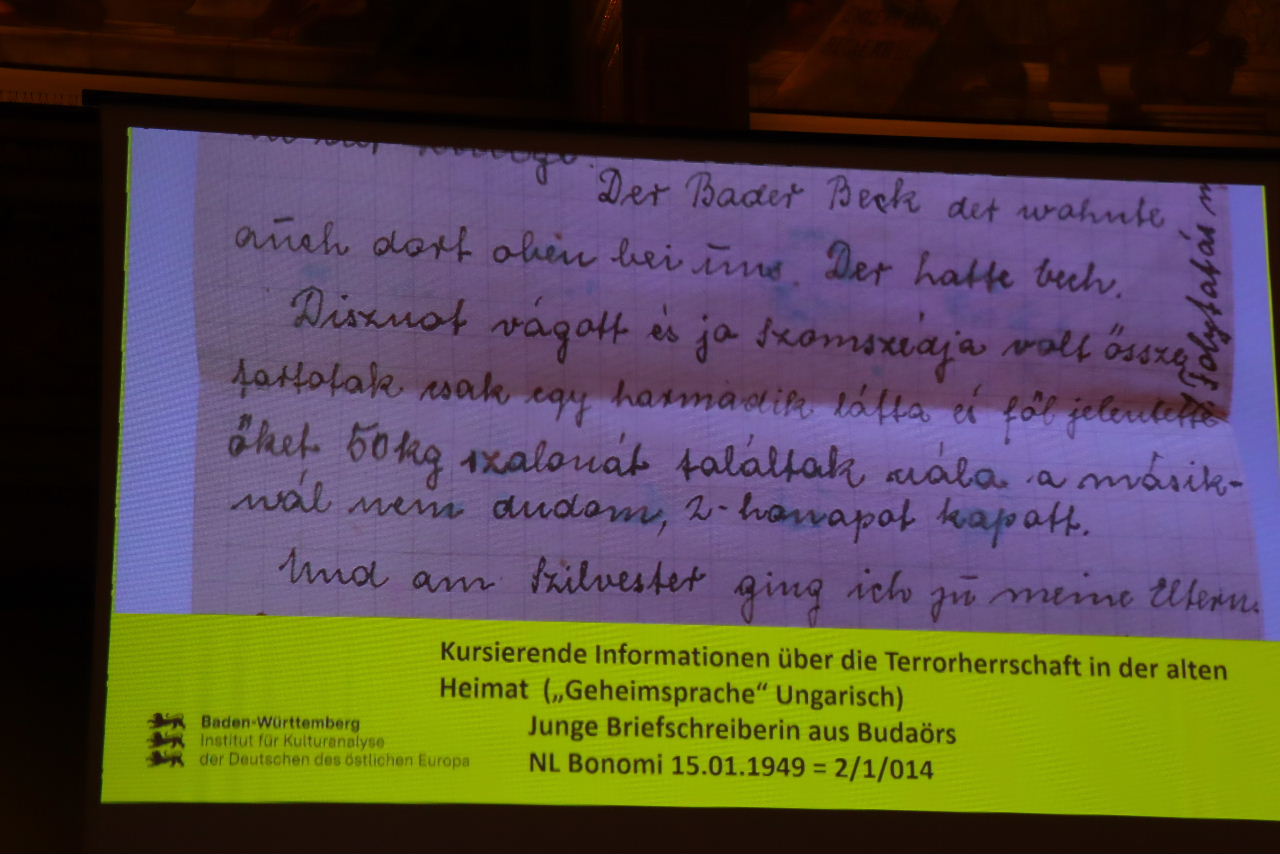 Der Bader Beck det wohnte
auch dort oben bei uns. Der hatte bech.
Disznot vágott és ja szomszédja volt össze
tartotak csak egy harmadik látta és föl jelentette
őket 50 kg szalonát találtak nála a másik-
nál nem dudom, 2-honapot kapott.
Und am Szilvester ging ich zu meine Eltern.
Folytatás
Kursierende Informationen über die Terrorherrschaft in der alten
Heimat („Geheimsprache“ Ungarisch)
Junge Briefschreiberin aus Budaörs
NL Bonomi 15.01.1949 = 2/1/014
Baden-Württemberg
Institut für Kulturanalyse
der Deutschen des östlichen Europa